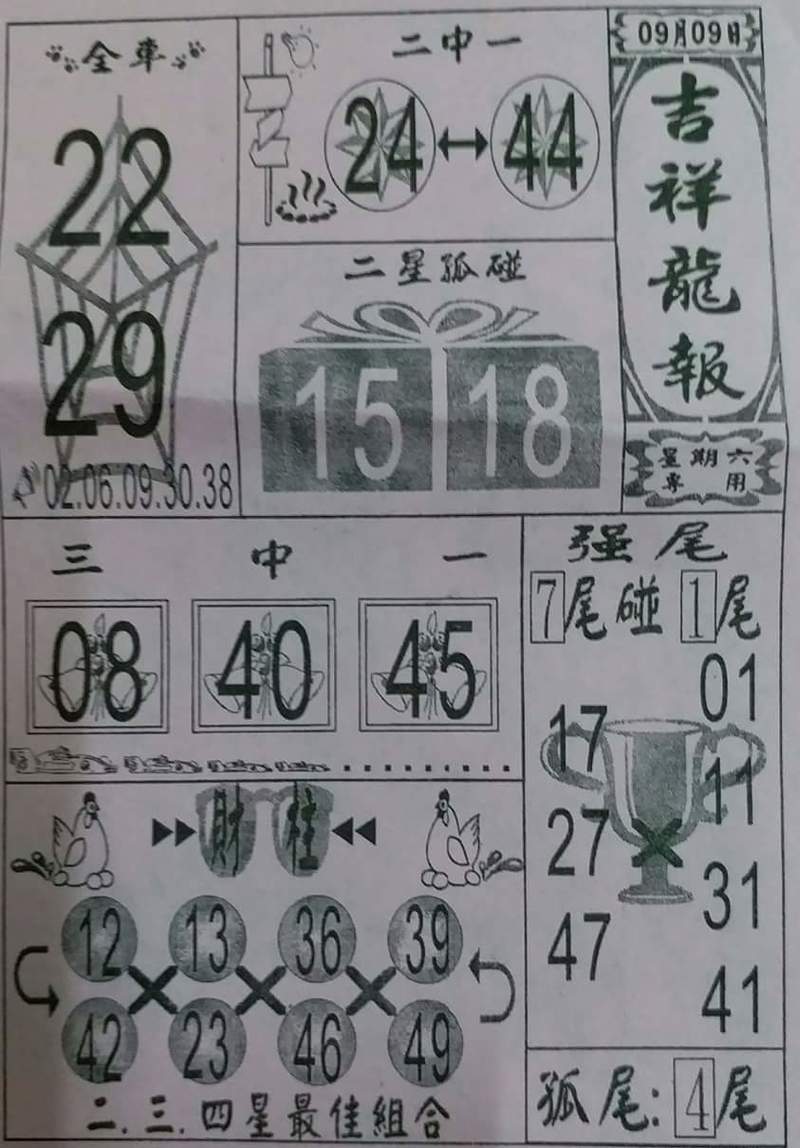 09月09日
吉祥龍報
星期六
專用
全車
22
29
02.06.09.30.38
二中一
24 44
二星孤碰
15 18
三中一
08 40 45
强尾
7尾碰1尾
01
17
11
27
31
47
41
孤尾:4尾
財柱
12 13 36 39
42 23 46 49
二.三.四星最佳組合